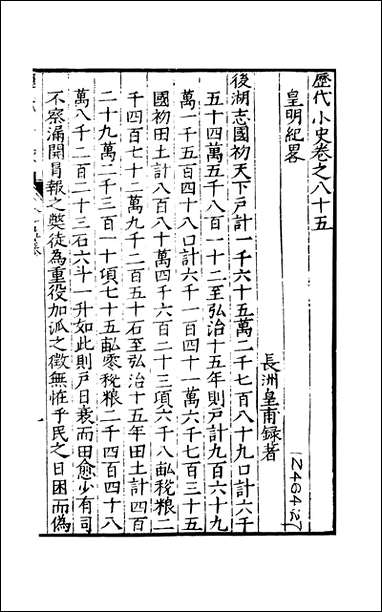 歷代小史卷之八十五
皇明紀畧
長洲皇甫錄著
後湖志國初天下戶計一千六十五萬二千七百八十九口計六千
五十四萬五千八百一十二至弘治十五年則戶計九百六十九
萬一千五百四十八口計六千一百四十一萬六千七百三十五
國初田土計八百八十萬四千六百二十三項六千八畝稅粮二
千四百七十二萬九千二百五十石至弘治十五年田土計四百
二十九萬二千三百一十項七十五畝零稅粮二千四百四十八
萬八千二百二十三石六斗一升如此則戶日衰而田愈少有司
不察漏開冐報之獘徒為重役加派之徵無恠乎民之日困而偽
Z464:27